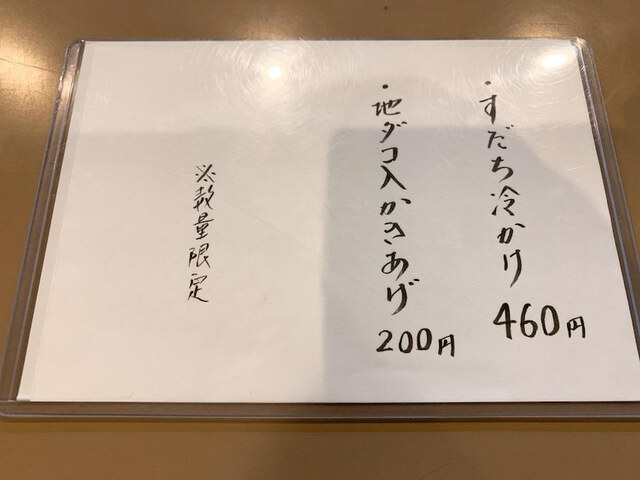 ・すだち冷かけ 460円
・地ダコ入かきあげ 200円
※数量限定